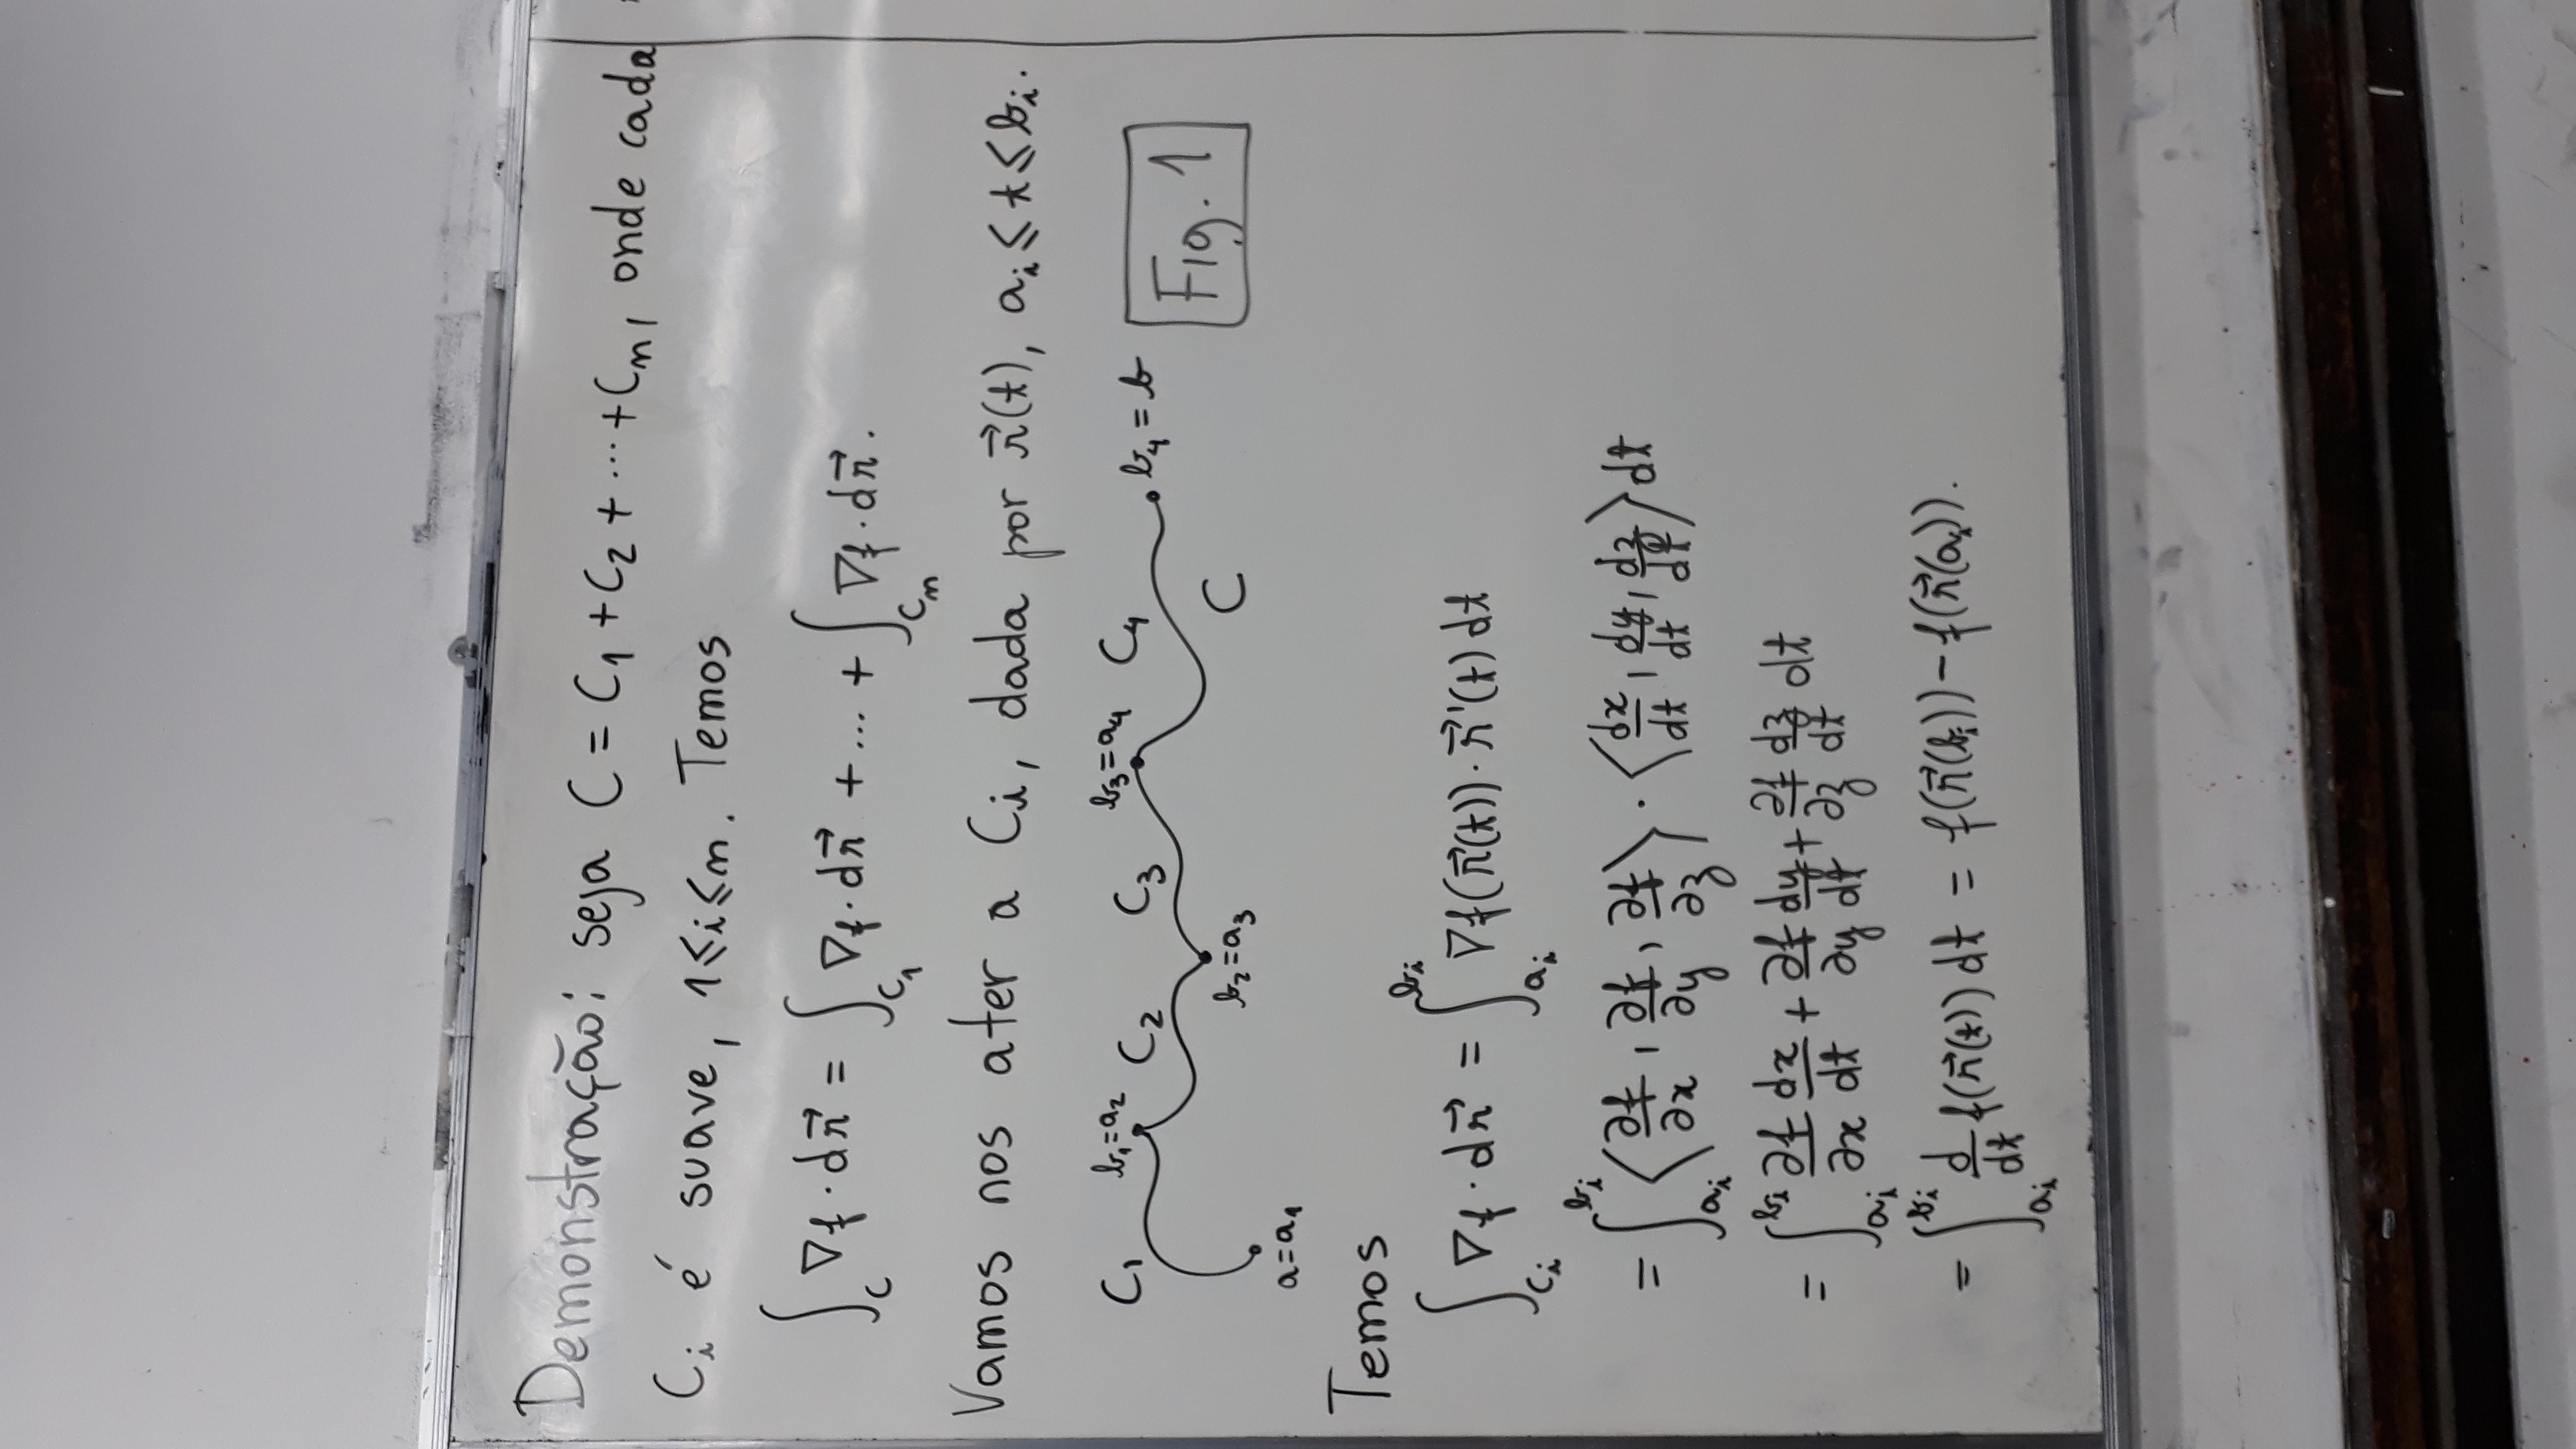 Demonstração: seja C = C₁ + C₂ + ... + Cₙ, onde cada
Cᵢ é suave, 1 ≤ i ≤ n. Temos
∫_C ∇f · dr⃗ = ∫_{C₁} ∇f · dr⃗ + ... + ∫_{Cₙ} ∇f · dr⃗.
Vamos nos ater a Cᵢ, dada por r⃗(t), aᵢ ≤ t ≤ bᵢ.
C₁ b₁=a₂ C₂ C₃ b₃=a₄ C₄ b₄=b
Fig. 1
a=a₁ b₂=a₃ C
Temos
∫_{Cᵢ} ∇f · dr⃗ = ∫_{aᵢ}^{bᵢ} ∇f(r⃗(t)) · r⃗'(t) dt
= ∫_{aᵢ}^{bᵢ} ⟨∂f/∂x, ∂f/∂y, ∂f/∂z⟩ · ⟨dx/dt, dy/dt, dz/dt⟩ dt
= ∫_{aᵢ}^{bᵢ} ∂f/∂x dx/dt + ∂f/∂y dy/dt + ∂f/∂z dz/dt dt
= ∫_{aᵢ}^{bᵢ} d/dt f(r⃗(t)) dt = f(r⃗(bᵢ)) − f(r⃗(aᵢ)).